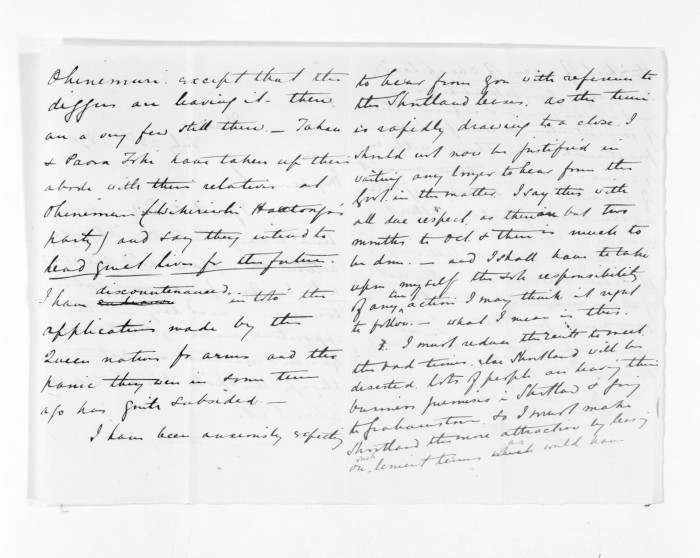 Ohinemuri except that the
diggers are leaving it - there
are a very few still there. - Taken
& Paora Toki have taken up their
abode with their relatives at
Ohinemuri (
party) and say they intend to
lead quiet lives for the future.
I have discountenanced "in toto" the
application made by the
Queen natives for arms and the
panic they were in some time
ago has quite subsided. -
I have been anxiously expecting
to hear from you with reference to
the Shortland leases, as the time
is rapidly drawing to a close. I
should not now be justified in
waiting any longer to hear from the
Govt. in the matter. I say this with
all due respect as there are but two
months to Oct. & there is much to
be done. - and I shall have to take
upon myself the sole responsibility
of any action I may think it right
to follow. - What I mean is this.
I must reduce the rents to meet
the bad times, else Shortland will be
deserted, lots of people are leaving their
business premises in Shortland & going
to Grahamstown, so I must make
Shortland the more attractive by leasing
on such lenient terms as would have